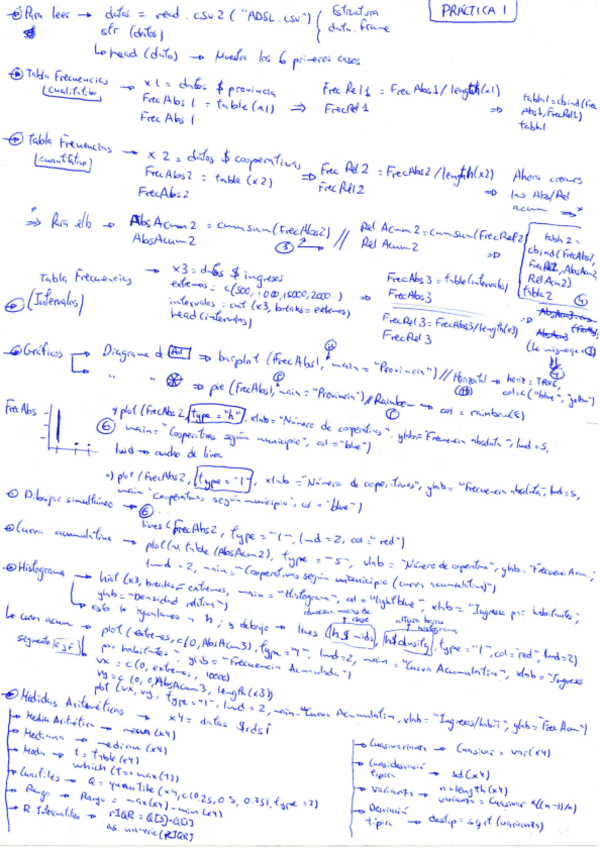 PRÁCTICA 1
Para leer → datos = read.csv2("ADSL.csv") { Estructura
str(datos) data.frame
head(datos) → Muestra los 6 primeros casos
Tabla Frecuencias → x1 = datos $ provincia FrecRel1 = FrecAbs1/length(x1)
(cualitativa) FrecAbs1 = table(x1) ⇒ FrecRel1 ⇒ tabla1 = cbind(FrecAbs1, FrecRel1)
FrecAbs1 tabla1
Tabla Frecuencias → x2 = datos $ cooperativas ⇒ FrecRel2 = FrecAbs2/length(x2) Ahora creamos
(cuantitativa) FrecAbs2 = table(x2) FrecRel2 ⇒ las Abs/Rel
FrecAbs2 acum
⇒ Para ello → AbsAcum2 = cumsum(FrecAbs2) // RelAcum2 = cumsum(FrecRel2)
AbsAcum2 RelAcum2 ⇒
tabla2 = cbind(FrecAbs2, FrecRel2, AbsAcum2, RelAcum2)
tabla2
Tabla Frecuencias → x3 = datos $ ingresos
(Intervalos) extremos = c(500, 1000, 15000, 2000
intervalos = cut(x3, breaks = extremos)
head(intervalos)
FrecAbs3 = table(intervalos)
FrecAbs3
FrecRel3 = FrecAbs3/length(x3)
FrecRel3
Gráficos → Diagrama d ⇒ barplot(FrecAbs1, main = "Provincia") // Horizontal → horiz = TRUE,
" " ⇒ pie(FrecAbs1, main = "Provincia") // Rainbow → col = rainbow(
col = c("blue", "yellow")
FrecAbs plot(FrecAbs2, type = "h", xlab = "Número de cooperativas", ylab = "Frecuencia absoluta", lwd = 5,
main = "Cooperativas según municipio", col = "blue")
lwd → ancho de línea
plot(FrecAbs2, type = "l", xlab = "Número de cooperativas", ylab = "Frecuencia absoluta", lwd = 5,
main = "Cooperativas según municipio", col = "blue")
Dibujar simultáneo → lines(FrecAbs2, type = "l", lwd = 2, col = "red")
Curva acumulativa → type = "s", xlab = "Número de cooperativas", ylab =
lwd = 2, main = "Cooperativas según municipio (curva acumulativa)")
Histograma → hist(x3, breaks = extremos, main = "Histograma", col = "lightblue", xlab = "Ingresos por habitantes",
ylab = "Densidad relativa")
esto lo igualamos a h, y debajo → lines(h$mids, h$density, type = "l", col = "red", lwd = 2)
plot(extremos, c(0, AbsAcum3), type = "l", lwd = 2, main = "Curva Acumulativa", xlab = "Ingresos
por habitantes", ylab = "Frecuencia Acumulada")
vx = c(0, extremos, 10000)
vy = c(0, 0, AbsAcum3, length(x3))
plot(vx, vy, type = "l", lwd = 2, main = "Curva Acumulativa", xlab = "Ingresos/habit", ylab = "Frec Acum")
Medidas Aritméticas → x4 = datos $rdsi
Media Aritmética → mean(x4)
Mediana → median(x4)
Moda → t = table(x4)
which(t == max(t))
Cuartiles → Q = quantile(x4, c(0.25, 0.5, 0.75), type = 2)
Rango → Rango = max(x4) - min(x4)
R. Intercuartílico → rIQR = Q[3] - Q[1]
as.numeric(rIQR)
Cuasivarianza → Cuasivar = var(x4)
Cuasidesviación típica → sd(x4)
Varianza → n = length(x4)
varianza = Cuasivar * ((n-1)/n)
Desviación típica → destip = sqrt(varianza)